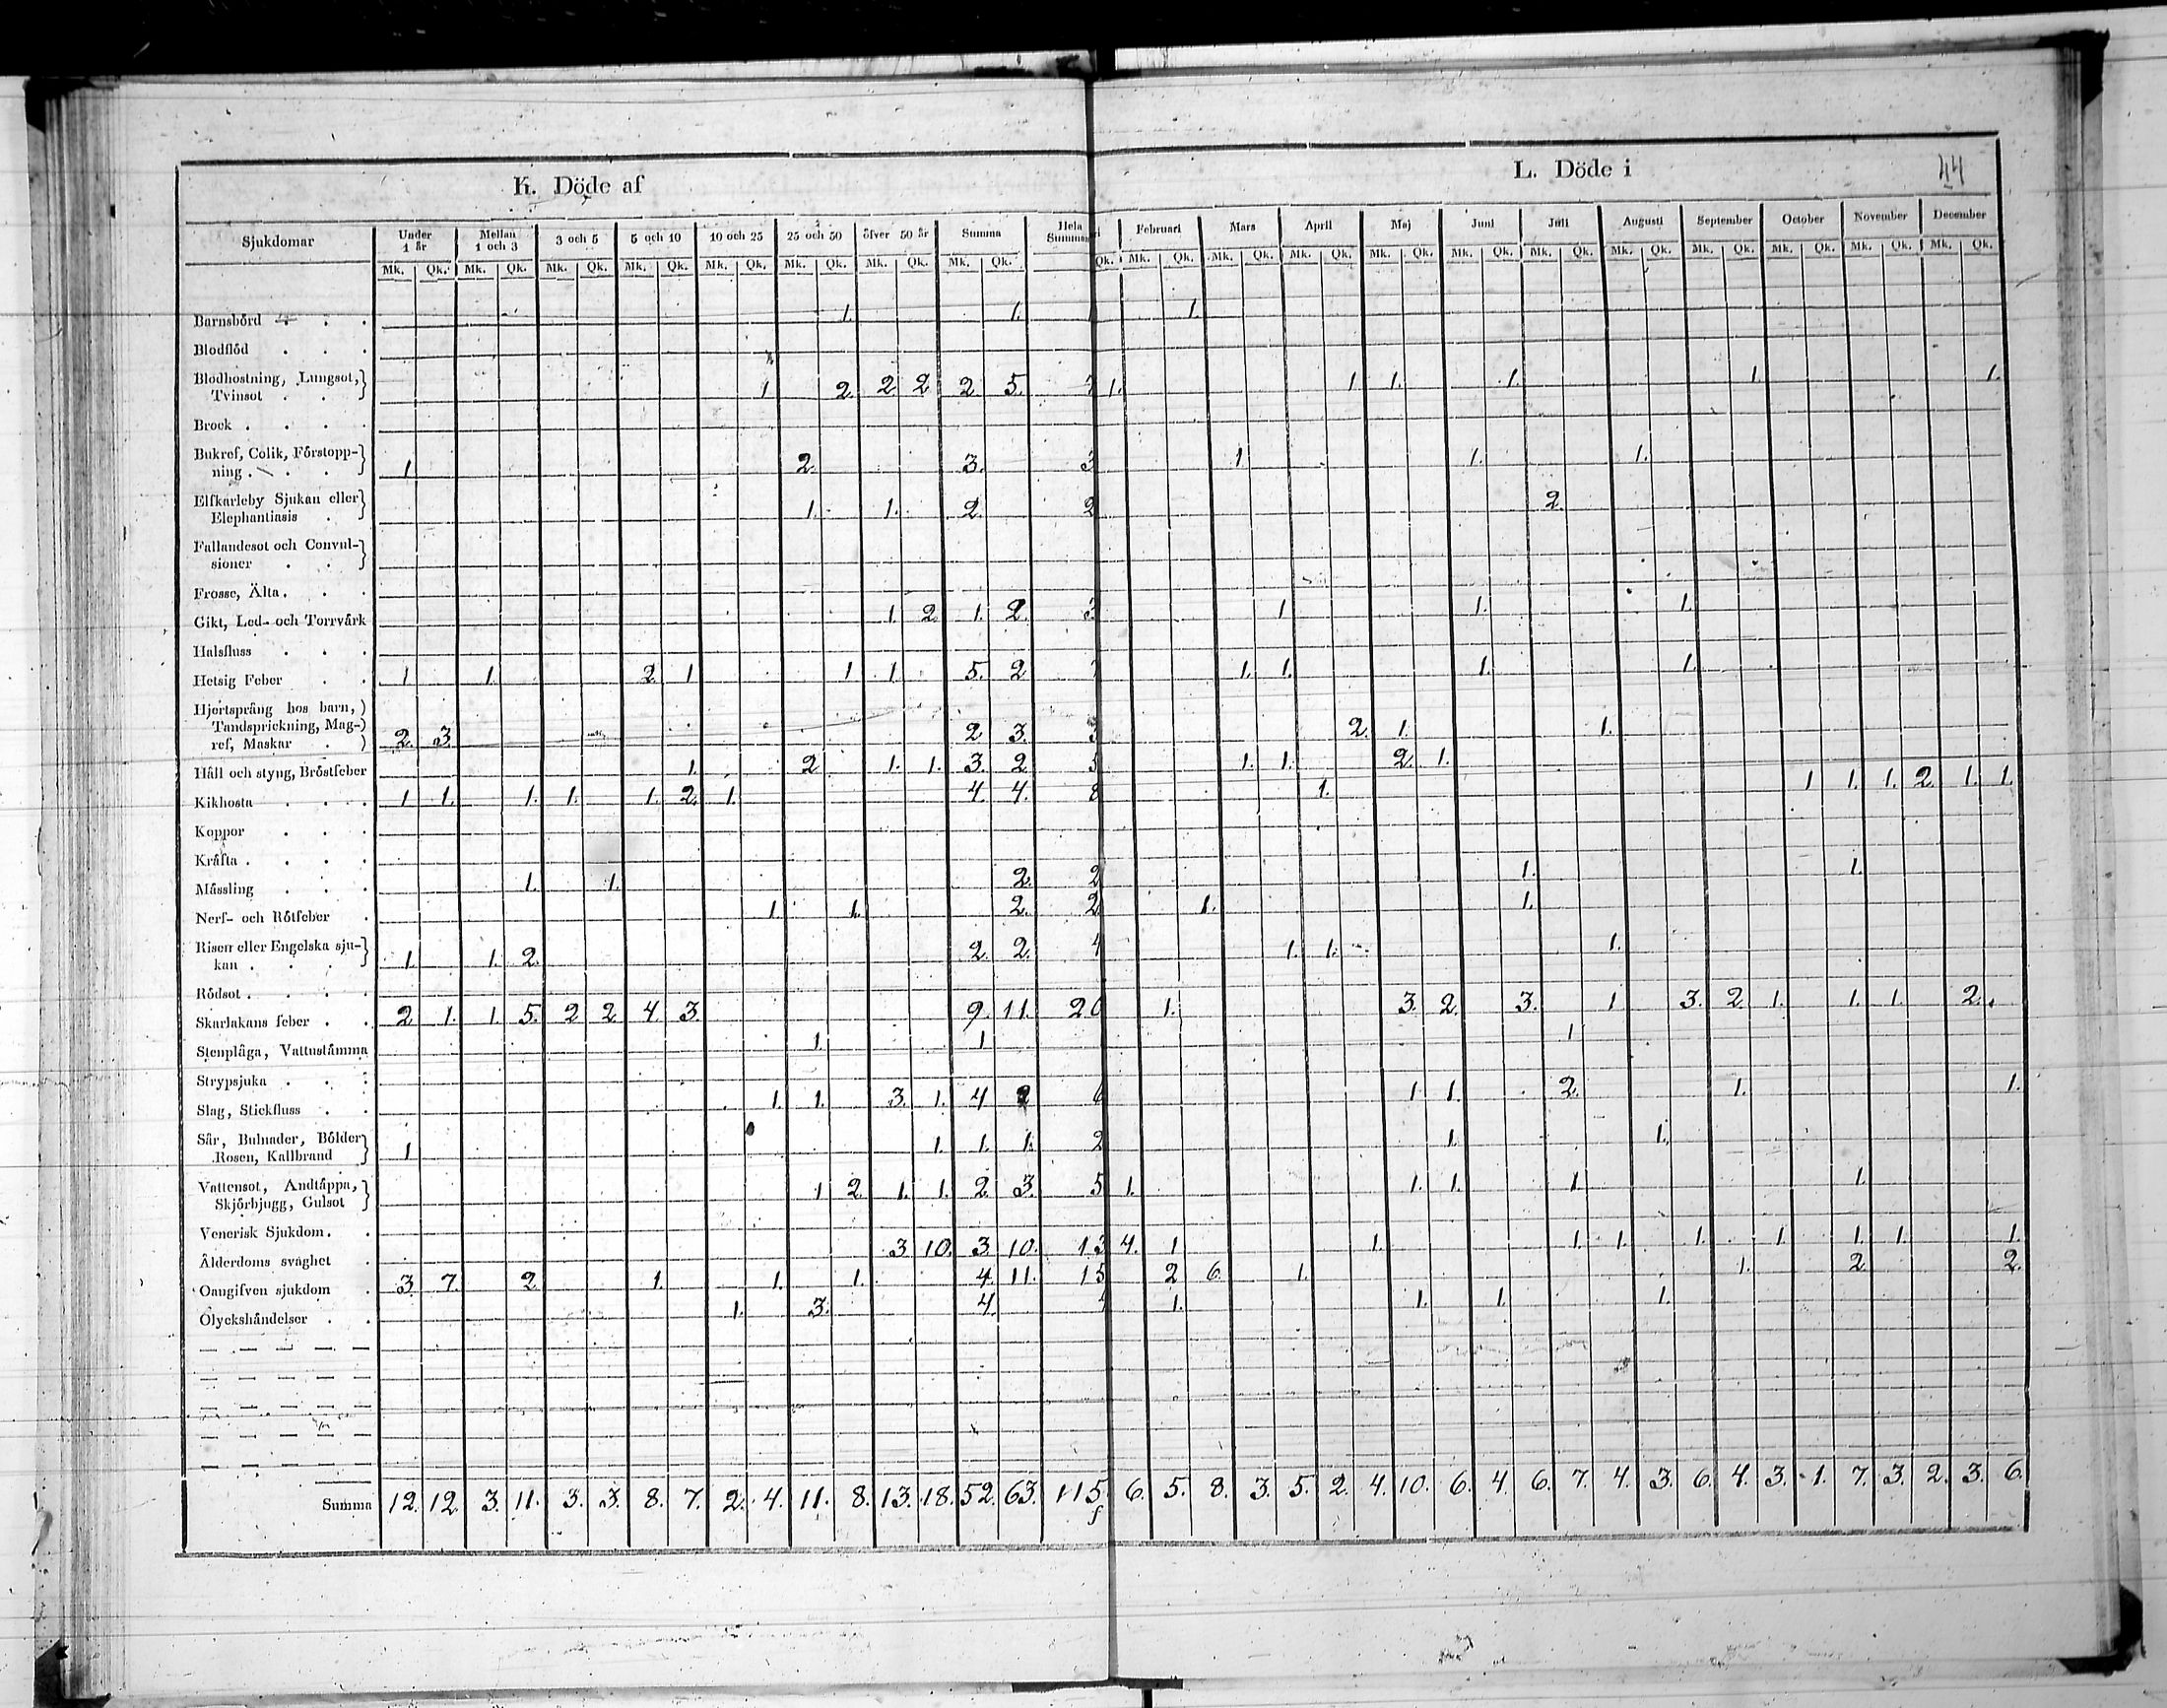 K. Döde af
L. Döde i
44
Sjukdomar Under 1 år Mellan 1 och 3 3 och 5 5 och 10 10 och 25 25 och 50 öfver 50 år Summa Hela Summan Februari Mars April Maj Juni Juli Augusti September October November December
Mk. Qk. Mk. Qk. Mk. Qk. Mk. Qk. Mk. Qk. Mk. Qk. Mk. Qk. Mk. Qk. Qk. Mk. Qk. Mk. Qk. Mk. Qk. Mk. Qk. Mk. Qk. Mk. Qk. Mk. Qk. Mk. Qk. Mk. Qk. Mk. Qk. Mk. Qk.
Barnsbörd 1. 1. 1.
Blodflöd
Blodhostning, Lungsot,
Tvinsot 1 2 2 2 2 5. 7 1. 1 1. 1. 1. 1.
Brock
Bukref, Colik, Förstopp-
ning 1 2 3. 3 1 1. 1.
Elfkarleby Sjukan eller
Elephantiasis 1. 1. 2 2 2.
Fallandesot och Convul-
sioner
Frosse, Älta
Gikt, Led- och Torrvärk 1 2 1. 2. 3 1 1. 1.
Halsfluss
Hetsig Feber 1 1. 2 1 1 1. 5. 2 1. 1. 1. 1.
Hjertsprång hos barn,
Tandsprickning, Mag-
ref, Maskar 2 3 2 3. 2. 1. 1.
Håll och styng, Bröstfeber 1. 2 1. 1. 3. 2 5 1. 1. 2. 1.
Kikhosta 1 1. 1. 1. 1. 2. 1. 4. 4. 8 1. 1 1. 1. 2 1. 1.
Koppor
Kräfta
Mässling 1. 1. 2. 2 1. 1.
Nerf- och Rötfeber 1 1. 2. 2 1. 1.
Risen eller Engelska sju-
kan 1. 1. 2. 2 2. 4 1. 1. 1.
Rödsot
Skarlakans feber 2 1. 1. 5. 2 2 4. 3. 9. 11. 20 1. 3. 2. 3. 1 3. 2 1. 1. 1. 2.
Stenplåga, Vattustämma 1. 1 1
Strypsjuka
Slag, Stickfluss 1. 1. 3. 1. 4 2 6 1 1. 2. 1. 1.
Sår, Bulnader, Bölder
Rosen, Kallbrand 1 1. 1. 1. 2 1. 1.
Vattensot, Andtäppa,
Skjörbjugg, Gulsot 1 2 1. 1. 2. 3. 5 1. 1. 1. 1. 1.
Venerisk Sjukdom
Ålderdoms svaghet 3 10. 3 10. 13 4. 1 1. 1. 1. 1. 1. 1. 1. 1.
Oangifven sjukdom 3. 7. 2. 1. 1. 1. 4. 11. 15 2 6. 1. 1. 2. 2.
Olyckshändelser 1. 3. 4. 4 1. 1. 1. 1.
Summa 12. 12. 3. 11. 3. 3. 8. 7. 2. 4. 11. 8. 13. 18. 52. 63. 115. 6. 5. 8. 3. 5. 2. 4. 10. 6. 4. 6. 7. 4. 3. 6. 4. 3. 1. 7. 3. 2. 3. 6.